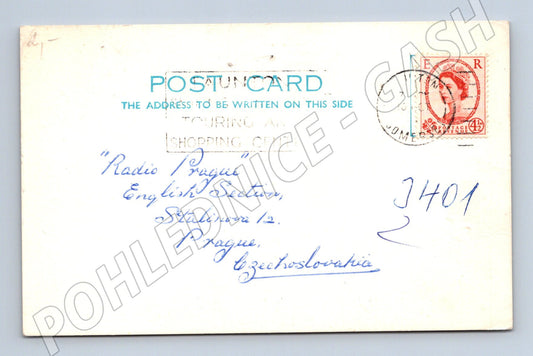 2,-
E R
POST CARD
THE ADDRESS TO BE WRITTEN ON THIS SIDE
TAUNTON
TOURING AND
SHOPPING
SOMERSET
POSTAGE
4½D
"Radio Prague"
English Section,
Stalinova 12.
Prague.
Czechoslovakia
J401
POHLEDNICE - GASH